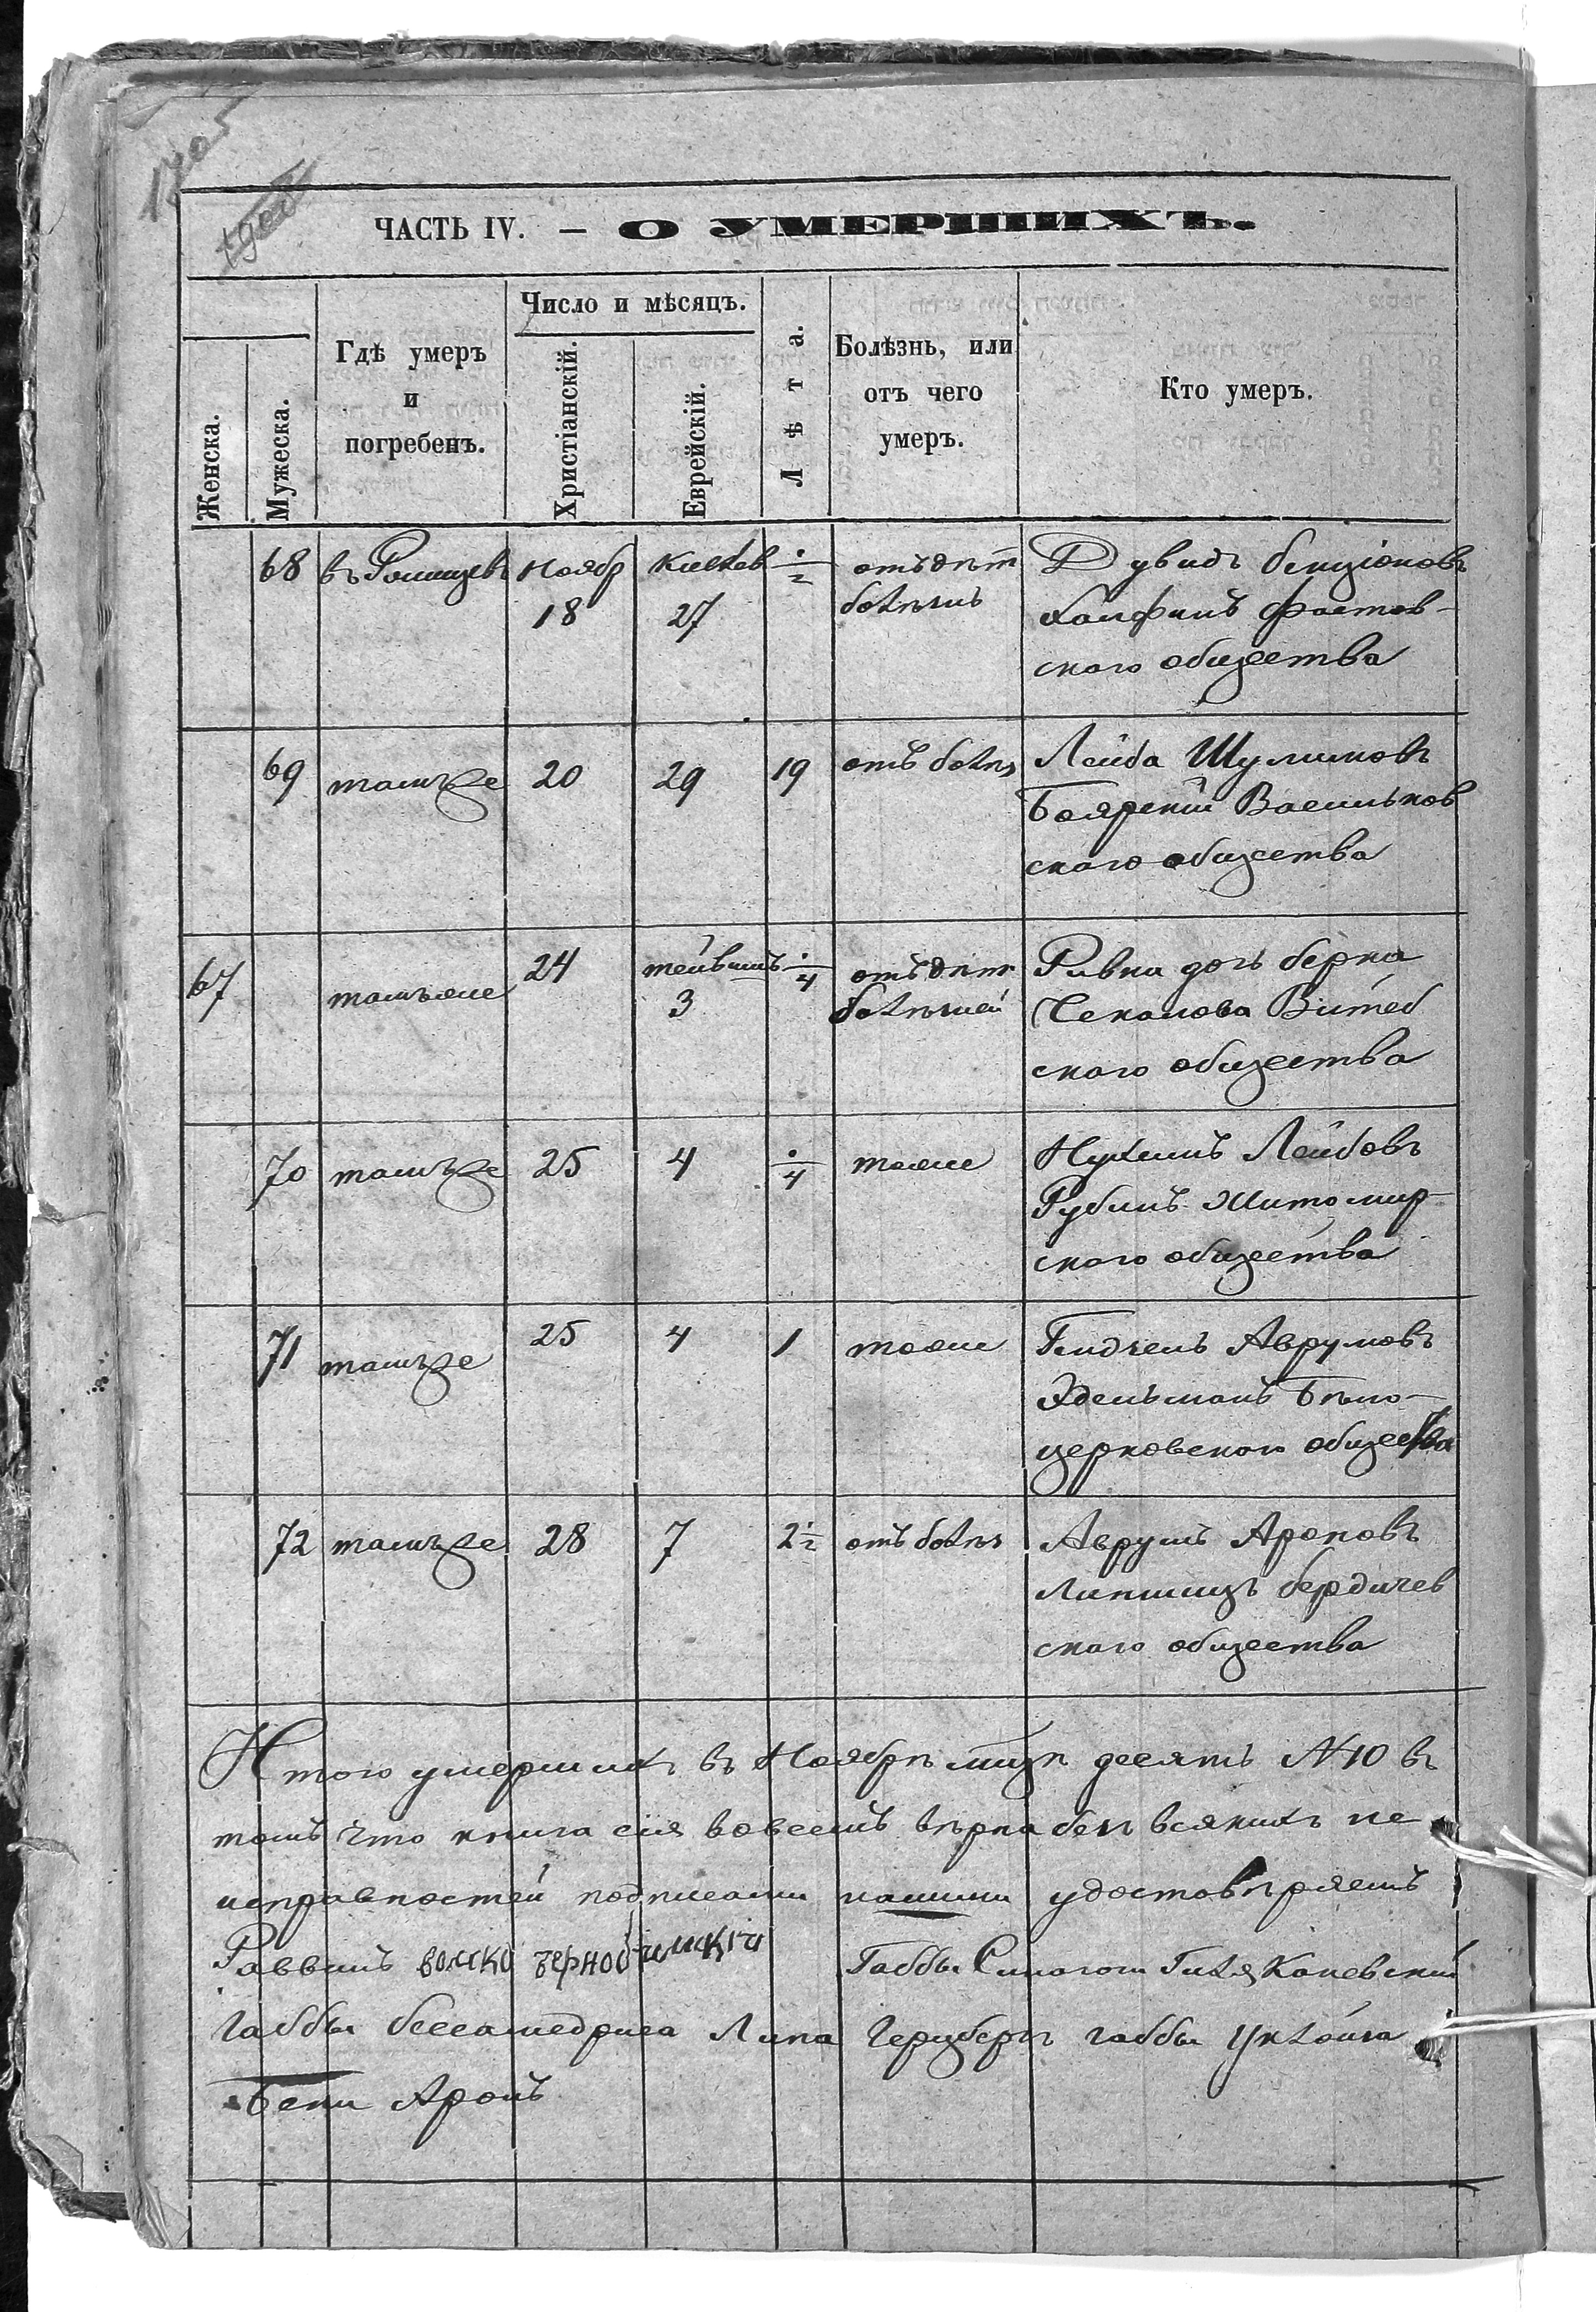 ЧАСТЬ IV. — О УМЕРШИХЪ.
Женска.
Мужеска.
Гдѣ умеръ
и
погребенъ.
Число и мѣсяцъ.
Христіанскій.
Еврейскій.
Лѣта.
Болѣзнь, или
отъ чего
умеръ.
Кто умеръ.
68 въ Ноябр Кислев 1/2 отъ дѣт Дувидъ Бенціоновъ
18 27 болѣзнь Фастов-
ского общества
69 тамъже 20 29 19 отъ болѣз Лейба Шулимовъ
Боярскій Васильков
ского общества
67 тамъже 24 тейвишъ 1/4 отъ дѣт Ривка дочь Берка
3 болѣзней Чекалова Витеб
ского общества
70 тамъже 25 4 1/4 тоже Нухимъ Лейбовъ
Рубинъ Житомир-
ского общества
71 тамъже 25 4 1 тоже Аврумовъ
Эдельманъ Бѣло-
церковского общества
72 тамъже 28 7 2 1/2 отъ болѣз Аврумъ Ароновъ
Липшицъ Бердичев
ского общества
Итого умершихъ въ Ноябрѣ мцѣ десять №10 въ
томъ что книга сія вовсемъ вѣрна безъ всякихъ не
исправностей подписами нашими удостовѣряемъ
Раввинъ Габбы Синагоги Каневскій
Габбы бесгамедриса Липа Герцбергъ габбы
Бени Аронъ